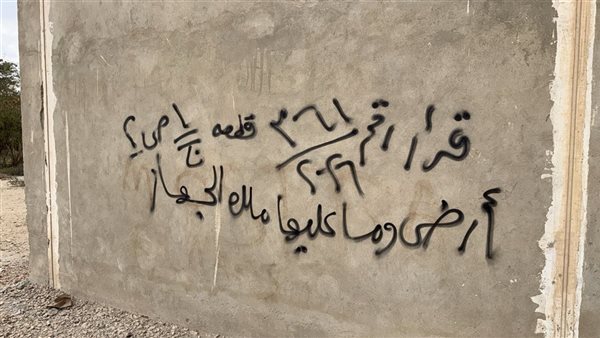 قرار رقم ٣٦١/٢٠٢٦ قطعه ١
أرض وما عليها ملك الجهاز